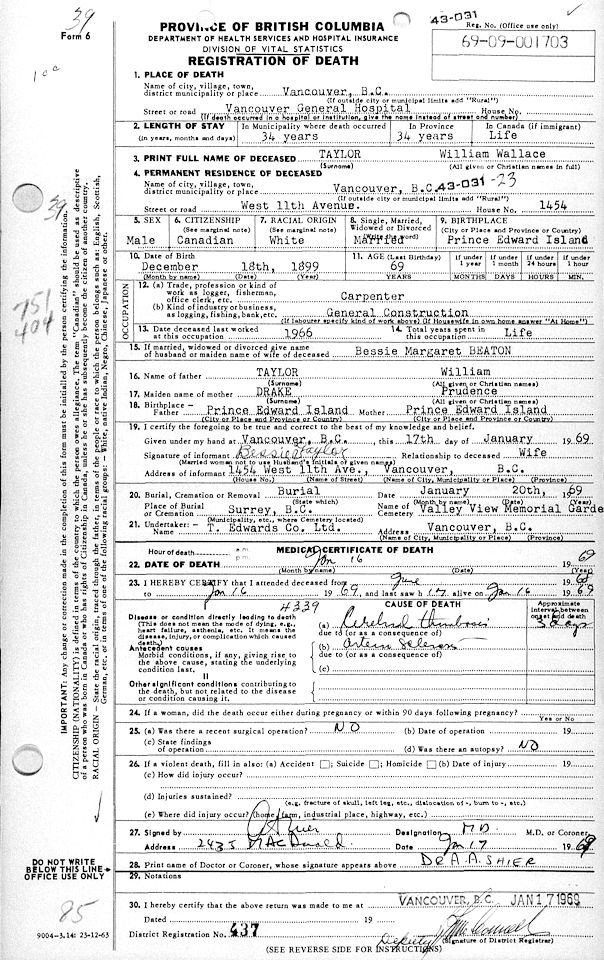 39
Form 6
1cc
PROVINCE OF BRITISH COLUMBIA
DEPARTMENT OF HEALTH SERVICES AND HOSPITAL INSURANCE
DIVISION OF VITAL STATISTICS
REGISTRATION OF DEATH
43-031
Reg. No. (Office use only)
69-09-001703
1. PLACE OF DEATH
Name of city, village, town, district municipality or place Vancouver, B.C.
(If outside city or municipal limits add "Rural")
Street or road Vancouver General Hospital House No.
(If death occurred in a hospital or institution, give the name instead of street and number)
2. LENGTH OF STAY (in years, months and days)
In Municipality where death occurred 34 years
In Province 34 years
In Canada (if immigrant) Life
3. PRINT FULL NAME OF DECEASED TAYLOR William Wallace
(Surname) (All given or Christian names in full)
4. PERMANENT RESIDENCE OF DECEASED
Name of city, village, town, district municipality or place Vancouver, B.C. 43-031-23
(If outside city or municipal limits add "Rural")
Street or road West 11th Avenue. House No. 1454
5. SEX Male
6. CITIZENSHIP (See marginal note) Canadian
7. RACIAL ORIGIN (See marginal note) White
8. Single, Married, Widowed or Divorced (Write the word) Married
9. BIRTHPLACE (City or Place and Province or Country) Prince Edward Island
10. Date of Birth December 18th, 1899
(Month by name) (Date) (Year)
11. AGE (Last Birthday) 69 YEARS
If under 1 year MONTHS
If under 1 month DAYS
If under 24 hours HOURS
If under 1 hour MIN.
OCCUPATION
12. (a) Trade, profession or kind of work as logger, fisherman, office clerk, etc. Carpenter
(b) Kind of industry or business, as logging, fishing, bank, etc. General Construction
(If labourer specify kind of work above) (If Housewife in own home answer "At Home")
13. Date deceased last worked at this occupation 1966
14. Total years spent in this occupation Life
15. If married, widowed or divorced give name of husband or maiden name of wife of deceased Bessie Margaret BEATON
16. Name of father TAYLOR William
(Surname) (All given or Christian names)
17. Maiden name of mother DRAKE Prudence
(Surname) (All given or Christian names)
18. Birthplace - Father Prince Edward Island Mother Prince Edward Island
(City or Place and Province or Country) (City or Place and Province or Country)
19. I certify the foregoing to be true and correct to the best of my knowledge and belief.
Given under my hand at Vancouver, B.C., this 17th day of January 1969
Signature of informant Bessie Taylor Relationship to deceased Wife
(Married woman not to use husband's initials or given names)
Address of informant 1454 West 11th Ave., Vancouver, B.C.
(House No.) (Name of Street) (Name of City, Municipality or Place) (Province)
20. Burial, Cremation or Removal Burial Date January 20th, 1969
(State which) (Month by name) (Date) (Year)
Place of Burial or Cremation Surrey, B.C. Name of Cemetery Valley View Memorial Garde
(Municipality, etc., where Cemetery located)
21. Undertaker: - Name T. Edwards Co. Ltd. Address Vancouver, B.C.
(Name of City, Municipality or Place) (Province)
MEDICAL CERTIFICATE OF DEATH
Hour of death a.m. p.m.
22. DATE OF DEATH Jan 16 1969
(Month by name) (Date) (Year)
23. I HEREBY CERTIFY that I attended deceased from June
to Jan 16 1969, and last saw him alive on Jan 16 1969
4339
CAUSE OF DEATH
Approximate interval between onset and death
Disease or condition directly leading to death
(This does not mean the mode of dying, e.g., heart failure, asthenia, etc. It means the disease, injury, or complication which caused death.)
(a) Cerebral Thrombosis 5 days
due to (or as a consequence of)
Antecedent causes
Morbid conditions, if any, giving rise to the above cause, stating the underlying condition last.
(b)
due to (or as a consequence of)
(c)
II
Other significant conditions contributing to the death, but not related to the disease or condition causing it.
24. If a woman, did the death occur either during pregnancy or within 90 days following pregnancy?
Yes or No
25. (a) Was there a recent surgical operation? NO (b) Date of operation 19
(c) State findings of operation (d) Was there an autopsy? NO
26. If a violent death, fill in also: (a) Accident ; Suicide ; Homicide (b) Date of injury 19
(c) How did injury occur?
(d) Injuries sustained?
(e.g. fracture of skull, left leg, etc., dislocation of -, burn to -, etc.)
(e) Where did injury occur? (home, farm, industrial place, highway, etc.)
27. Signed by A Shier Designation MD M.D. or Coroner
Address 2435 MacDonald Date Jan 17 1969
28. Print name of Doctor or Coroner, whose signature appears above DR A. A. SHIER
29. Notations
30. I hereby certify that the above return was made to me at VANCOUVER, B.C. JAN 17 1969
Dated 19
District Registration No. 437 Deputy
(Signature of District Registrar)
(SEE REVERSE SIDE FOR INSTRUCTIONS)
39
751
404
IMPORTANT: Any change or correction made in the completion of this form must be initialled by the person certifying the information.
CITIZENSHIP (NATIONALITY) is defined in terms of the country to which the person owes allegiance. The term "Canadian" should be used as descriptive of a person who was born in Canada or who has rights of Citizenship in Canada, unless he or she has subsequently become the citizen of another country.
RACIAL ORIGIN - State the racial origin, traced through the father, in terms of the people or race to which the person belongs such as: English, Scottish, German, etc., or in terms of one of the following racial groups: - White, native Indian, Negro, Chinese, Japanese or other.
DO NOT WRITE BELOW THIS LINE
OFFICE USE ONLY
85
9004-3.14: 23-12-63